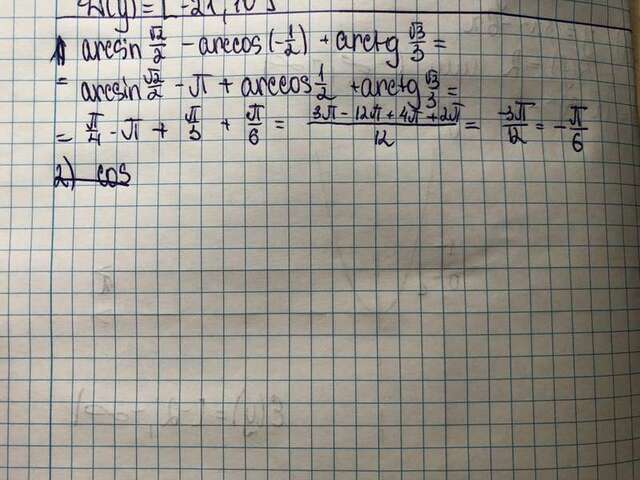 1 arcsin √2/2 - arccos(-1/2) + arctg √3/3 =
= arcsin √2/2 - π + arccos 1/2 + arctg √3/3 =
= π/4 - π + π/3 + π/6 = (3π - 12π + 4π + 2π)/12 = -3π/12 = -π/6
2) cos